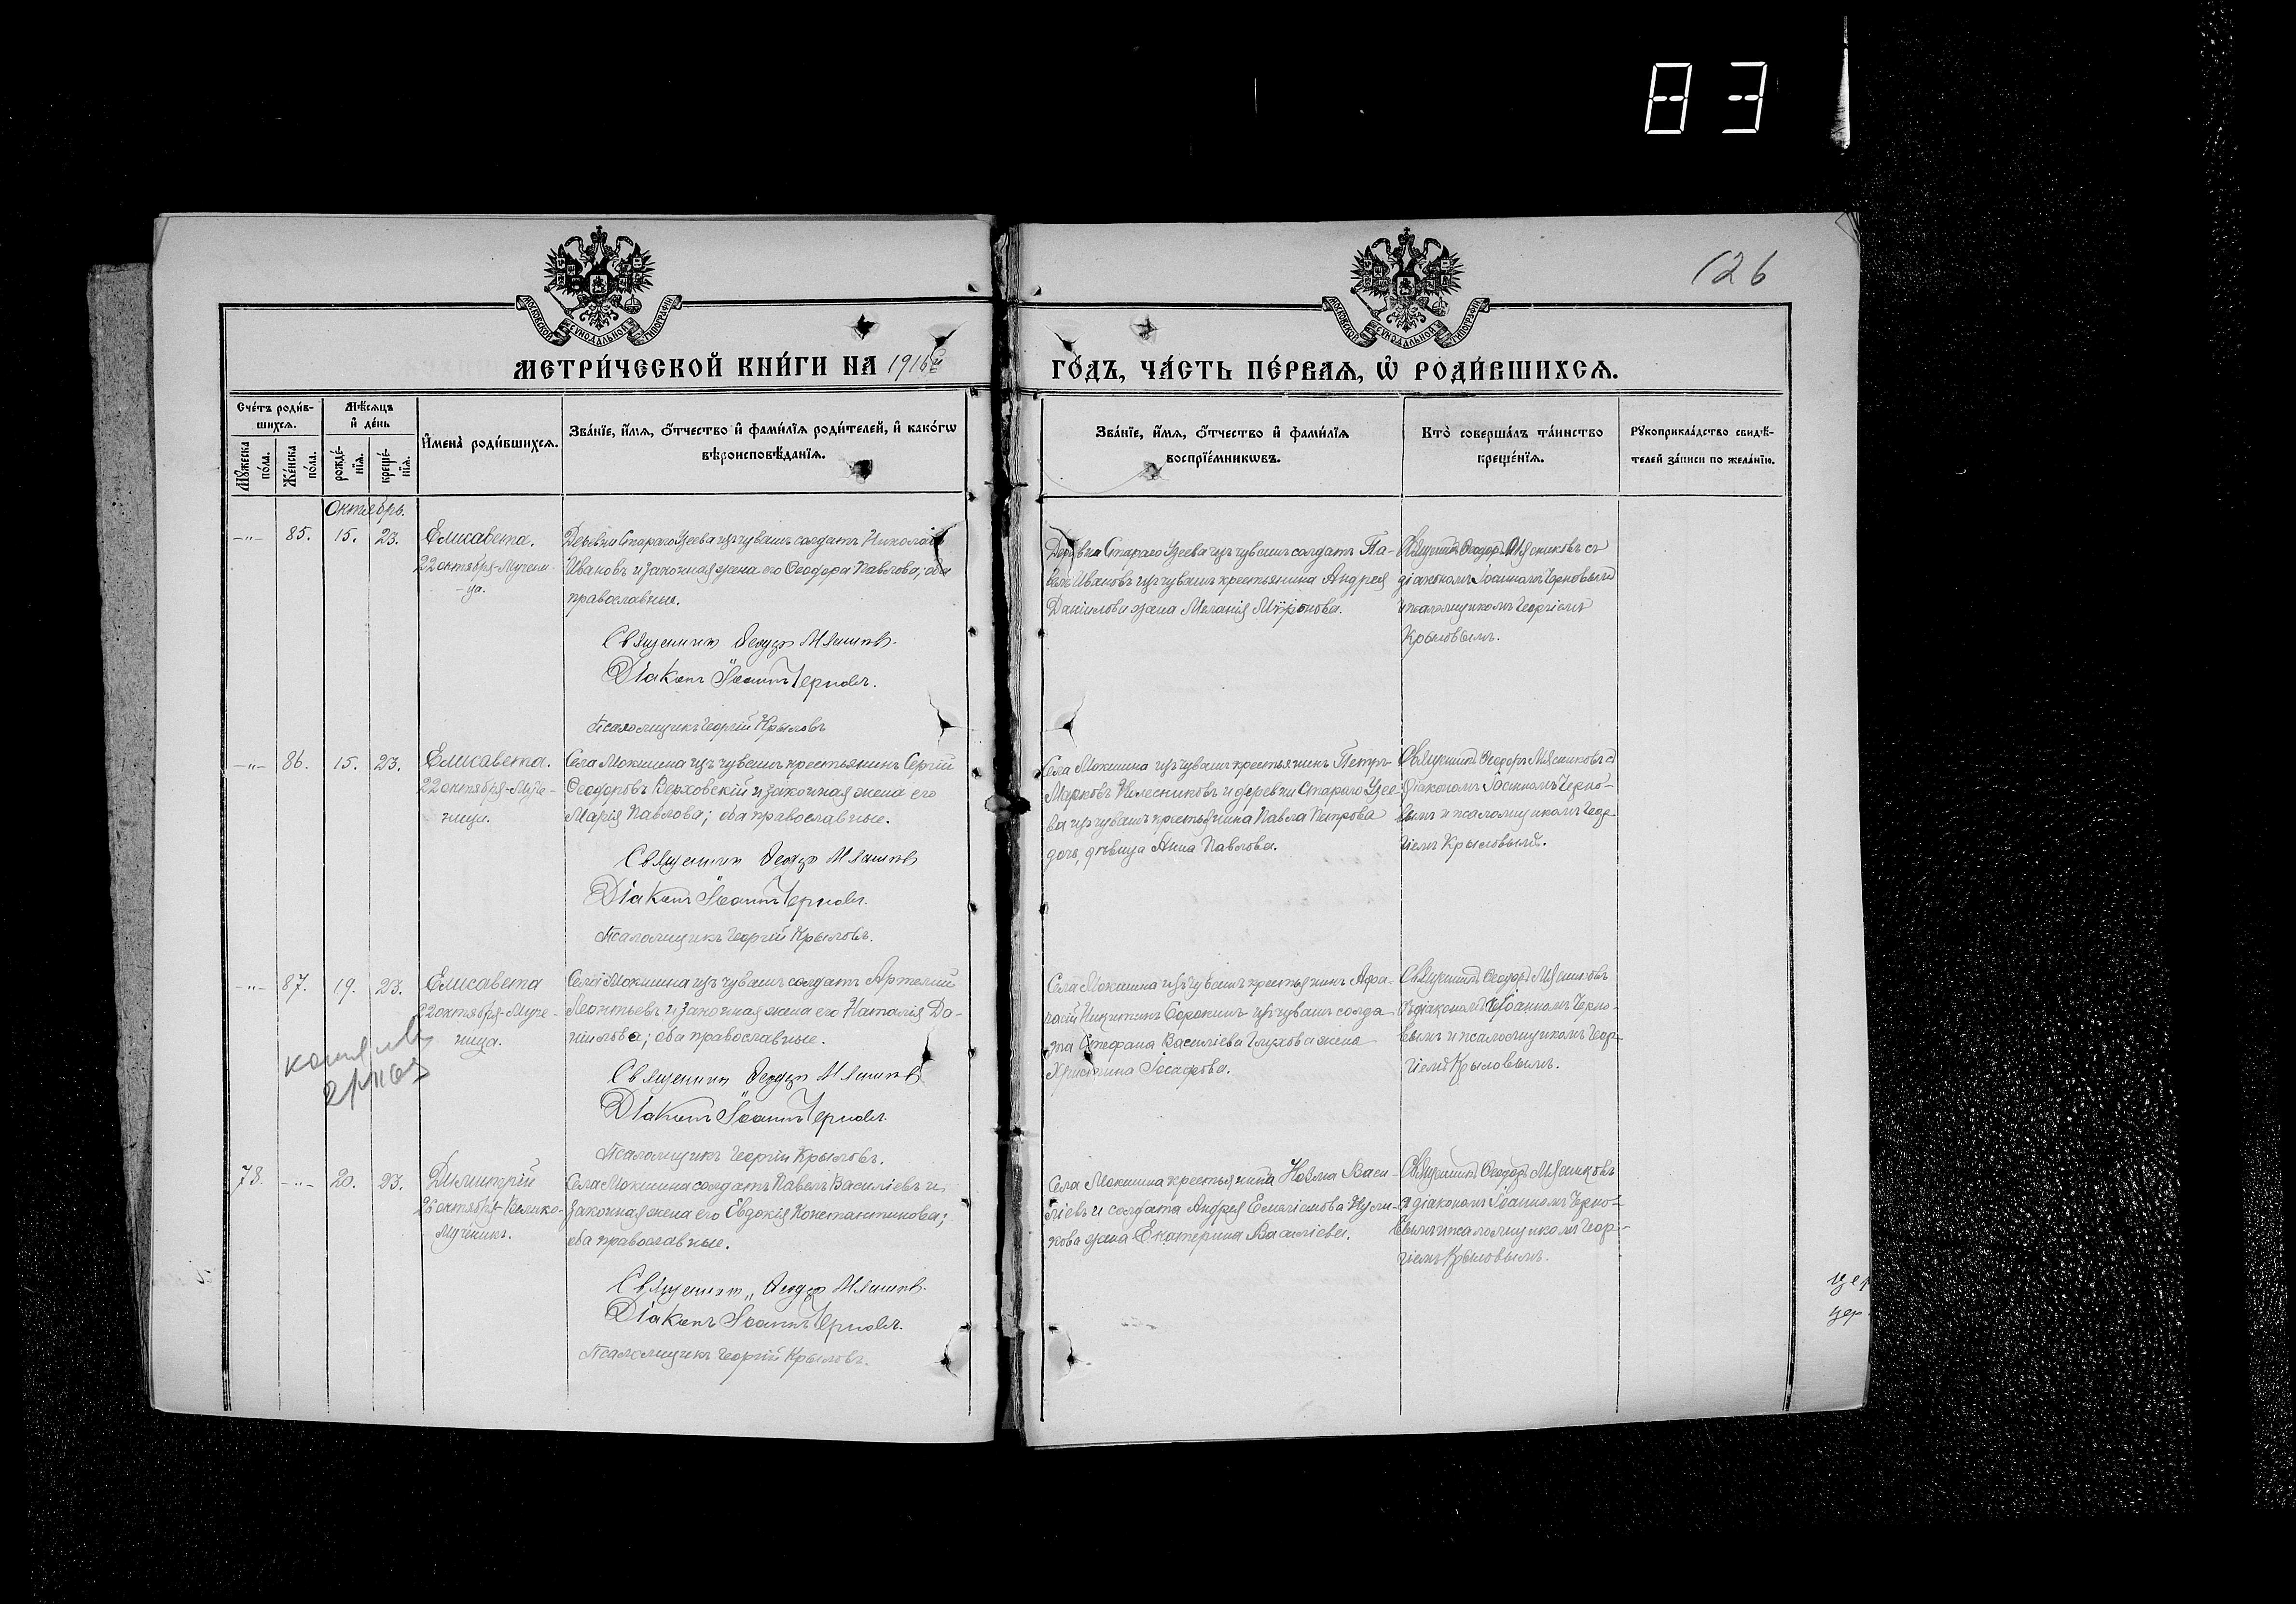 83
126
МОСКОВСКОЙ СѴНОДАЛЬНОЙ ТИПОГРАФІИ
МОСКОВСКОЙ СѴНОДАЛЬНОЙ ТИПОГРАФІИ
МЕТРИ́ЧЕСКОЙ КНИ́ГИ НА 1916й
ГО́ДЪ, ЧА́СТЬ ПЕ́РВАѦ, Ѡ҆ РОДИ́ВШИХСѦ.
Сче́тъ роди́в-
шихсѧ.
Мꙋ́жеска
по́ла.
Же́нска
по́ла.
Мѣ́сѧцъ
и҆ де́нь
рожде́-
нїѧ.
креще́-
нїѧ.
И҆мена̀ роди́вшихсѧ.
Зва́нїе, и҆́мѧ, ѻ҆́тчество и҆ фами́лїѧ роди́телей, и҆ како́гѡ
вѣроисповѣ́данїѧ.
Зва́нїе, и҆́мѧ, ѻ҆́тчество и҆ фами́лїѧ
воспрїе́мникѡвъ.
Кто̀ соверша́лъ та́инство
креще́нїѧ.
Рꙋкоприкла́дство свидѣ́-
телей за́писи по жела́нїю.
Октябрь.
-"- 85. 15. 23.
Елисавета.
22 октября-Мучени-
-ца.
Деревни Стараго Узеева изъ чувашъ солдатъ Николай
Ивановъ и законная жена его Ѳеодора Павлова; оба
православные.
Священникъ Ѳеодоръ Мясниковъ.
Діаконъ Іоаннъ Черновъ.
Псаломщикъ Георгій Крыловъ
Деревни Стараго Узеева изъ чувашъ солдатъ Па-
велъ Ивановъ изъ чувашъ крестьянина Андрея
Даніилова жена Меланія Мѵронова.
Священникъ Ѳеодоръ Мясниковъ съ
діакономъ Іоанномъ Черновымъ
и псаломщикомъ Георгіемъ
Крыловымъ.
-"- 86. 15. 23.
Елисавета.
22 октября-Муче-
ница.
Села Мокшина изъ чувашъ крестьянинъ Сергій
Ѳеодоровъ Верховскій и законная жена его
Марія Павлова; оба православные.
Священникъ Ѳеодоръ Мясниковъ
Діаконъ Іоаннъ Черновъ.
Псаломщикъ Георгій Крыловъ.
Села Мокшина изъ чувашъ крестьянинъ Петръ
Марковъ Колесниковъ и деревни Стараго Узее-
ва изъ чувашъ крестьянина Павла Петрова
дочь, дѣвица Анна Павлова.
Священникъ Ѳеодоръ Мясниковъ съ
діакономъ Іоанномъ Черно-
вымъ и псаломщикомъ Геор-
гіемъ Крыловымъ.
-"- 87. 19. 23.
Елисавета
22 октября-Муче-
ница.
Села Мокшина изъ чувашъ солдатъ Артемій
Леонтьевъ и законная жена его Наталія Да-
ніилова; оба православные.
Священникъ Ѳеодоръ Мясниковъ
Діаконъ Іоаннъ Черновъ.
Псаломщикъ Георгій Крыловъ.
Села Мокшина изъ чувашъ крестьянинъ Аѳа-
насій Никитинъ Сорокинъ изъ чувашъ солда-
та Стефана Василіева Глухова жена
Христина Іосафова.
Священникъ Ѳеодоръ Мясниковъ
съ діакономъ Іоанномъ Черно-
вымъ и псаломщикомъ Геор-
гіемъ Крыловымъ.
78. -"- 20. 23.
Димитрій
26 октября-Велико-
мученикъ.
Села Мокшина солдатъ Павелъ Василіевъ и
законная жена его Евдокія Константинова;
оба православные.
Священникъ Ѳеодоръ Мясниковъ.
Діаконъ Іоаннъ Черновъ.
Псаломщикъ Георгій Крыловъ.
Села Мокшина крестьянина Васи-
ліевъ и солдата Андрея Емеліанова
жена Екатерина Василіева.
Священникъ Ѳеодоръ Мясниковъ
съ діакономъ Іоанномъ Черно-
вымъ и псаломщикомъ Геор-
гіемъ Крыловымъ.
цер
цер